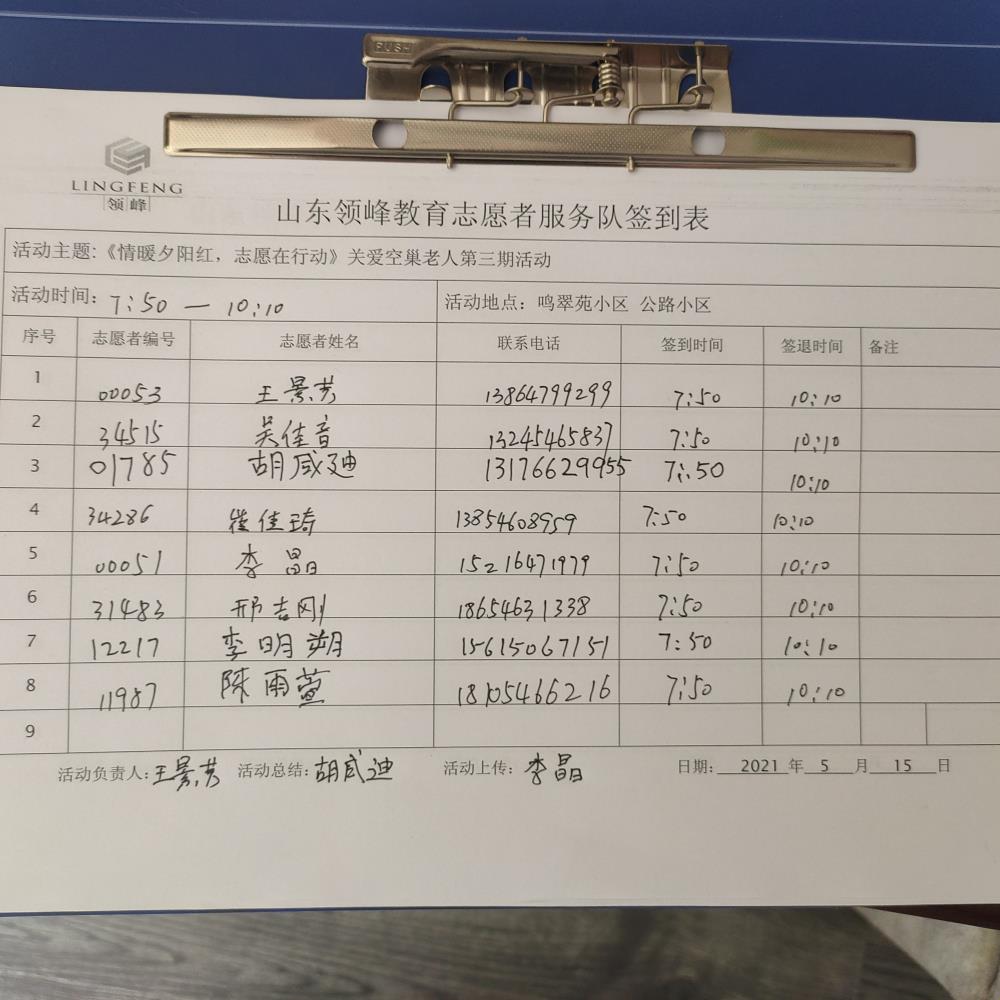 PUSH
LINGFENG
领峰
山东领峰教育志愿者服务队签到表
活动主题:《情暖夕阳红，志愿在行动》关爱空巢老人第三期活动
活动时间: 7:50 — 10:10 活动地点: 鸣翠苑小区 公路小区
序号 志愿者编号 志愿者姓名 联系电话 签到时间 签退时间 备注
1 00053 王景芳 13864799299 7:50 10:10
2 34515 吴佳音 13245465837 7:50 10:10
3 01785 胡咸迪 13176629955 7:50 10:10
4 34286 崔佳琦 13854608959 7:50 10:10
5 00051 李晶 15216471979 7:50 10:10
6 31483 邢吉刚 18654631338 7:50 10:10
7 12217 李明翊 15615067151 7:50 10:10
8 11987 陈雨萱 18105466216 7:50 10:10
9
活动负责人: 王景芳 活动总结: 胡咸迪 活动上传: 李晶 日期: 2021 年 5 月 15 日